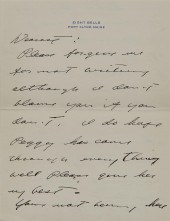 EIGHT BELLS
Dearest :
Please forgive me
for not writing
although I don't
blame you if you
don't! I do hope
Peggy has come
through everything
well Please give her
my best =
Your not being here